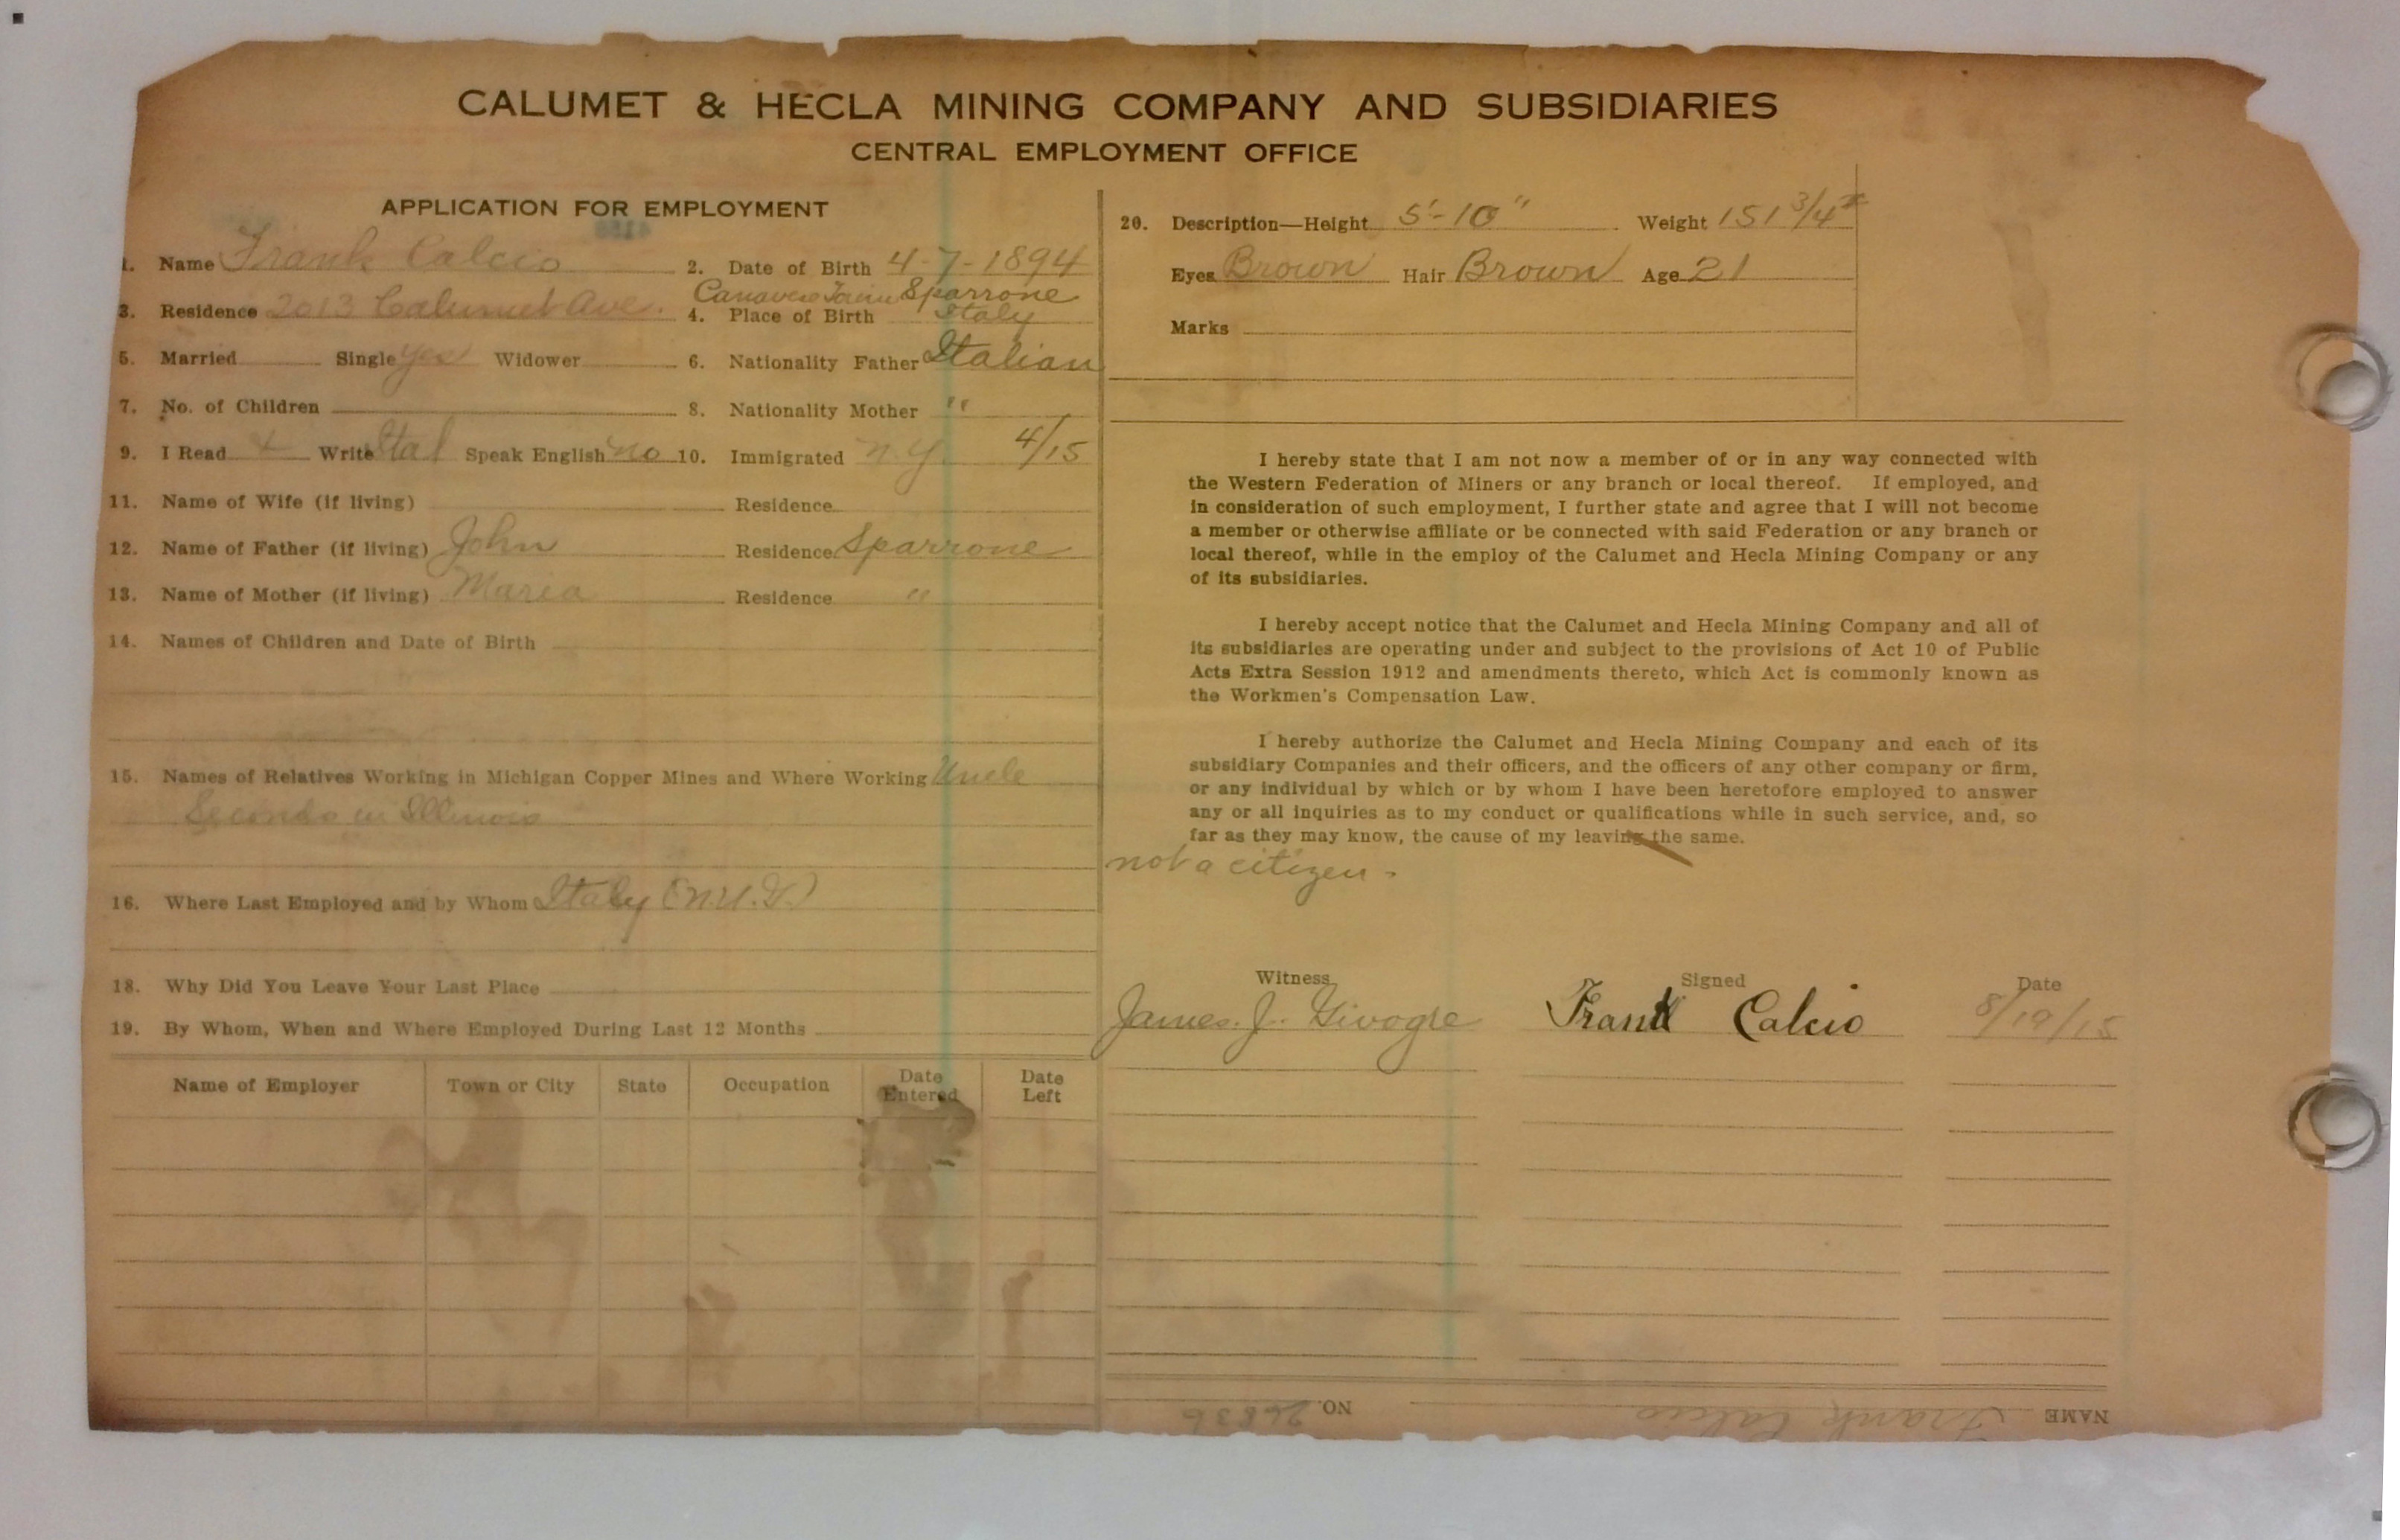 CALUMET & HECLA MINING COMPANY AND SUBSIDIARIES
CENTRAL EMPLOYMENT OFFICE
APPLICATION FOR EMPLOYMENT
1. Name Frank Calcio 2. Date of Birth 4-7-1894
Sparrone
3. Residence 2013 Calumet Ave. 4. Place of Birth Italy
5. Married Single yes Widower 6. Nationality Father Italian
7. No. of Children 8. Nationality Mother "
9. I Read & Write Ital Speak English no 10. Immigrated N.Y. 4/15
11. Name of Wife (if living) Residence
12. Name of Father (if living) John Residence Sparrone
13. Name of Mother (if living) Maria Residence "
14. Names of Children and Date of Birth
15. Names of Relatives Working in Michigan Copper Mines and Where Working Uncle
Secondo in Illinois
16. Where Last Employed and by Whom Italy
18. Why Did You Leave Your Last Place
19. By Whom, When and Where Employed During Last 12 Months
Name of Employer Town or City State Occupation Date Entered Date Left
20. Description—Height 5'-10" Weight 151 3/4
Eyes Brown Hair Brown Age 21
Marks
I hereby state that I am not now a member of or in any way connected with
the Western Federation of Miners or any branch or local thereof. If employed, and
in consideration of such employment, I further state and agree that I will not become
a member or otherwise affiliate or be connected with said Federation or any branch or
local thereof, while in the employ of the Calumet and Hecla Mining Company or any
of its subsidiaries.
I hereby accept notice that the Calumet and Hecla Mining Company and all of
its subsidiaries are operating under and subject to the provisions of Act 10 of Public
Acts Extra Session 1912 and amendments thereto, which Act is commonly known as
the Workmen's Compensation Law.
I hereby authorize the Calumet and Hecla Mining Company and each of its
subsidiary Companies and their officers, and the officers of any other company or firm,
or any individual by which or by whom I have been heretofore employed to answer
any or all inquiries as to my conduct or qualifications while in such service, and, so
far as they may know, the cause of my leaving the same.
not a citizen.
Witness Signed Date
James J. Frank Calcio 8/19/15
NAME Frank Calcio NO. 26836